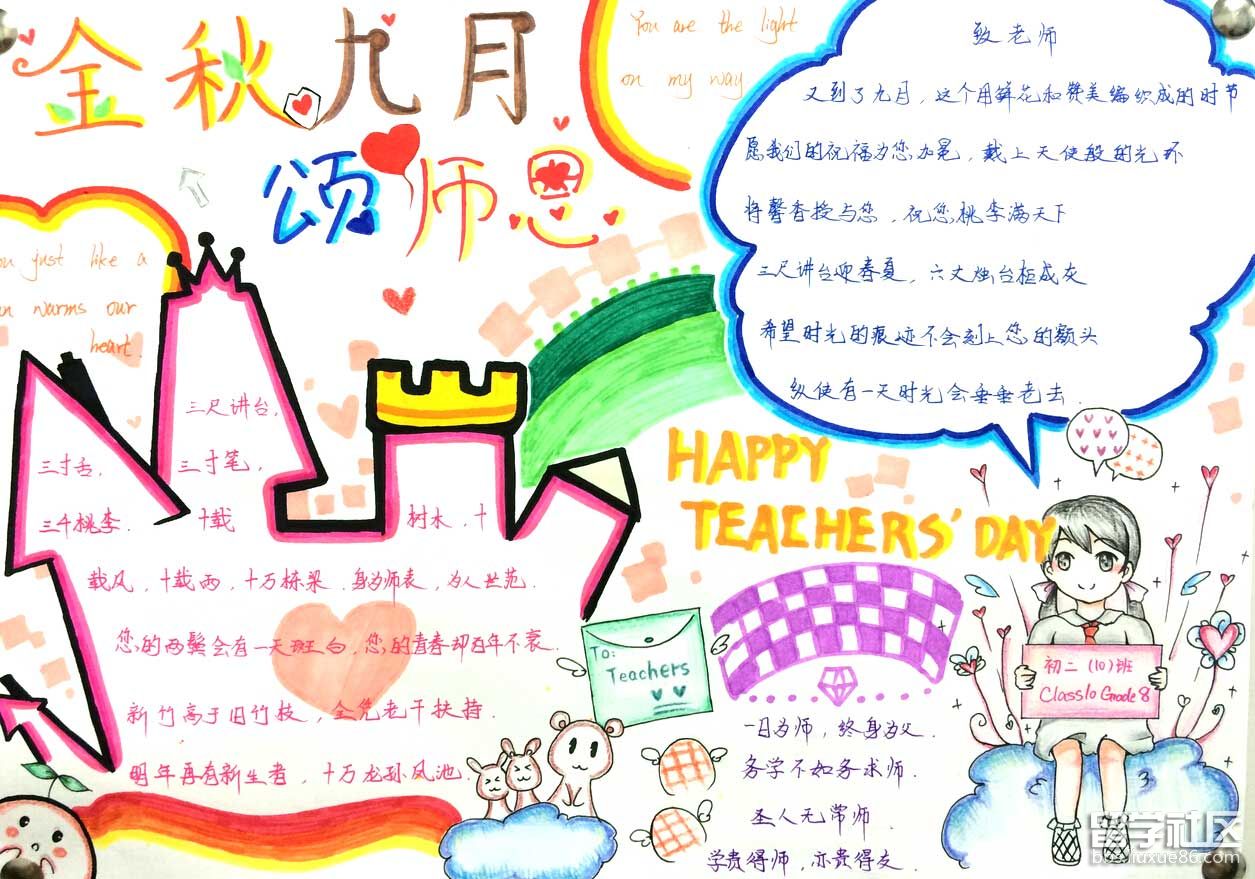 金秋九月
颂师恩
You are the light
on my way
致老师
又到了九月，这个用鲜花和赞美编织成的时节
愿我们的祝福为您加冕，戴上天使般的光环
将馨香授与您，祝您桃李满天下
三尺讲台迎春夏，六丈烛台柜成灰
希望时光的痕迹不会刻上您的额头
纵使有一天时光会垂垂老去.
ou just like a
n warms our
heart.
三尺讲台，
三寸舌，
三寸笔，
三千桃李.
十载
树木，十
载风，十载雨，十万栋梁.身为师表，为人世范.
您的两鬓会有一天斑白，您的青春却百年不衰.
新竹高于旧竹枝，全凭老干扶持.
明年再有新生者，十万龙孙凤池.
HAPPY
TEACHERS' DAY
To:
Teachers
初二(10)班
Class10 Grade8
一日为师，终身为父.
务学不如务求师.
圣人无常师.
学贵得师，亦贵得友.
留学社区
bbs.liuxue86.com